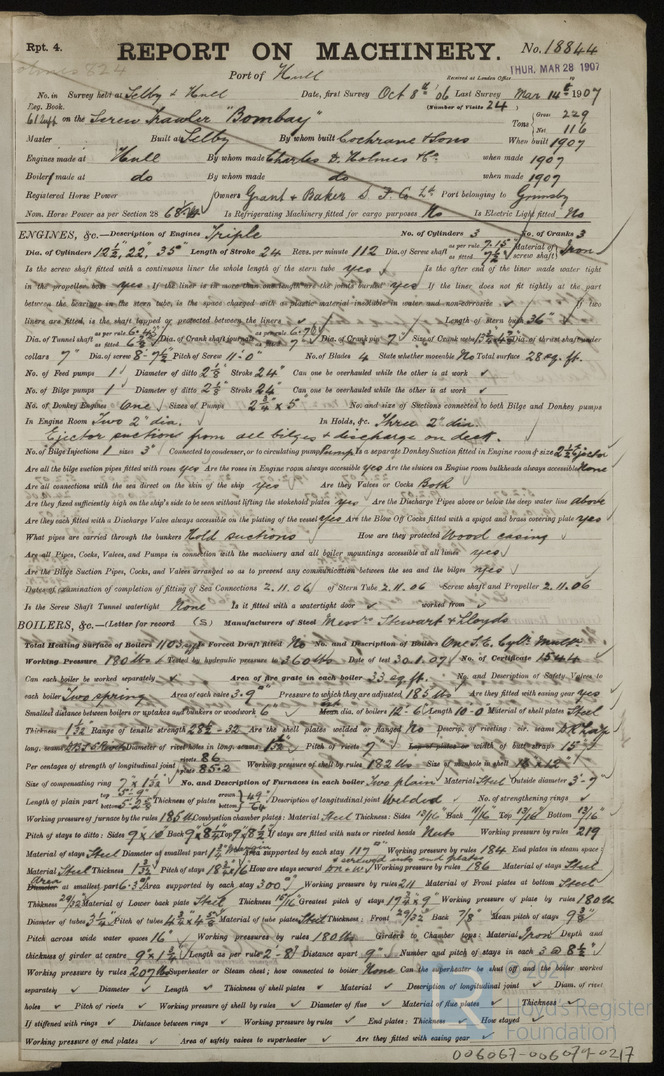 Rpt. 4. REPORT ON MACHINERY. No. 18844
Port of Hull
Received at London Office THUR. MAR 28 1907
No. in Survey held at Selby & Hull Date, first Survey Oct 8th '06 Last Survey Mar 14th 1907
Reg. Book. (Number of Visits 24)
on the Screw Trawler "Bombay" Tons Gross 229 Net 116
Master Built at Selby By whom built Cochrane & Sons When built 1907
Engines made at Hull By whom made Charles D. Holmes & Co. when made 1907
Boilers made at do By whom made do when made 1907
Registered Horse Power Owners Grant & Baker S. F. Co Ld Port belonging to Grimsby
Nom. Horse Power as per Section 28 68 Is Refrigerating Machinery fitted for cargo purposes No Is Electric Light fitted No
ENGINES, &c.—Description of Engines Triple No. of Cylinders 3 No. of Cranks 3
Dia. of Cylinders 12½", 22", 35" Length of Stroke 24 Revs. per minute 112 Dia. of Screw shaft as per rule 7.15" as fitted 7½" Material of screw shaft Iron
Is the screw shaft fitted with a continuous liner the whole length of the stern tube yes Is the after end of the liner made water tight
in the propeller boss yes If the liner is in more than one length are the joints burned yes If the liner does not fit tightly at the part
between the bearings in the stern tube, is the space charged with a plastic material insoluble in water and non-corrosive If two
liners are fitted, is the shaft lapped or protected between the liners Length of stern bush 36"
Dia. of Tunnel shaft as per rule as fitted Dia. of Crank shaft journals as per rule as fitted 7" Dia. of Crank pin 7" Size of Crank webs Dia. of thrust shaft under
collars 7" Dia. of screw 8-7½ Pitch of Screw 11-0" No. of Blades 4 State whether moveable No Total surface 28 sq. ft.
No. of Feed pumps 1 Diameter of ditto 2⅛" Stroke 24" Can one be overhauled while the other is at work
No. of Bilge pumps 1 Diameter of ditto 2⅛" Stroke 24" Can one be overhauled while the other is at work
No. of Donkey Engines One Sizes of Pumps 2¾" x 5" No. and size of Suctions connected to both Bilge and Donkey pumps
In Engine Room Two 2" dia. In Holds, &c. Three 2" dia.
Ejector suction from all bilges & discharge on deck.
No. of Bilge Injections 1 sizes 3" Connected to condenser, or to circulating pump Pump Is a separate Donkey Suction fitted in Engine room & size 2½" Ejector
Are all the bilge suction pipes fitted with roses yes Are the roses in Engine room always accessible yes Are the sluices on Engine room bulkheads always accessible None
Are all connections with the sea direct on the skin of the ship yes Are they Valves or Cocks Both
Are they fixed sufficiently high on the ship's side to be seen without lifting the stokehold plates yes Are the Discharge Pipes above or below the deep water line above
Are they each fitted with a Discharge Valve always accessible on the plating of the vessel yes Are the Blow Off Cocks fitted with a spigot and brass covering plate yes
What pipes are carried through the bunkers Hold suctions How are they protected Wood casing
Are all Pipes, Cocks, Valves, and Pumps in connection with the machinery and all boiler mountings accessible at all times yes
Are the Bilge Suction Pipes, Cocks, and Valves arranged so as to prevent any communication between the sea and the bilges yes
Dates of examination of completion of fitting of Sea Connections 2.11.06 of Stern Tube 2.11.06 Screw shaft and Propeller 2.11.06
Is the Screw Shaft Tunnel watertight None Is it fitted with a watertight door worked from
BOILERS, &c.—(Letter for record (S) Manufacturers of Steel Messrs Stewart & Lloyds
Total Heating Surface of Boilers 1103 Is Forced Draft fitted No No. and Description of Boilers One S.E. Cyll. Mult.
Working Pressure 180 lbs Tested by hydraulic pressure to 360 lbs Date of test 30.1.07 No. of Certificate 1544
Can each boiler be worked separately Area of fire grate in each boiler 33 sq. ft. No. and Description of Safety Valves to
each boiler Two spring Area of each valve 3.9" Pressure to which they are adjusted 185 lbs Are they fitted with easing gear yes
Smallest distance between boilers or uptakes and bunkers or woodwork 6" Mean dia. of boilers 12-6 Length 10-0 Material of shell plates Steel
Thickness 1 3/32 Range of tensile strength 28½-32 Are the shell plates welded or flanged No Descrip. of riveting: cir. seams DR Lap
long. seams Diameter of rivet holes in long. seams 1 3/32 Pitch of rivets 7" Lap of plates or width of butt straps 15"
Per centages of strength of longitudinal joint rivets 86 plate 85.2 Working pressure of shell by rules 182 lbs Size of manhole in shell 16 x 12"
Size of compensating ring 7" x 1 3/32 No. and Description of Furnaces in each boiler Two plain Material Steel Outside diameter 3-9"
Length of plain part top bottom Thickness of plates crown bottom Description of longitudinal joint Welded No. of strengthening rings
Working pressure of furnace by the rules 185 lbs Combustion chamber plates: Material Steel Thickness: Sides 13/16 Back 11/16 Top 13/16 Bottom 13/16"
Pitch of stays to ditto: Sides 9 x 10 Back 9 x 8¾ Top 9 x 8½ If stays are fitted with nuts or riveted heads Nuts Working pressure by rules 219
Material of stays Steel Diameter at smallest part Area supported by each stay 117" Working pressure by rules 184 End plates in steam space:
Material Steel Thickness 1 3/32 Pitch of stays How are stays secured screwed into end plates Working pressure by rules 186 Material of stays Steel
Area at smallest part 6.3 Area supported by each stay 300" Working pressure by rules 211 Material of Front plates at bottom Steel
Thickness 29/32 Material of Lower back plate Steel Thickness 15/16 Greatest pitch of stays Working pressure of plate by rules 180 lbs
Diameter of tubes 3¼" Pitch of tubes Material of tube plates Steel Thickness: Front 29/32" Back 7/8" Mean pitch of stays
Pitch across wide water spaces 16" Working pressures by rules 180 lbs Girders to Chamber tops: Material Iron Depth and
thickness of girder at centre 9" x 1¾ Length as per rule 2-8 Distance apart 9" Number and pitch of stays in each 3 @ 8½"
Working pressure by rules 207 lbs Superheater or Steam chest; how connected to boiler None Can the superheater be shut off and the boiler worked
separately Diameter Length Thickness of shell plates Material Description of longitudinal joint Diam. of rivet
holes Pitch of rivets Working pressure of shell by rules Diameter of flue Material of flue plates Thickness
If stiffened with rings Distance between rings Working pressure by rules End plates: Thickness How stayed
Working pressure of end plates Area of safety valves to superheater Are they fitted with easing gear
© 2021
Lloyd's Register
Foundation
006067-006074-0217